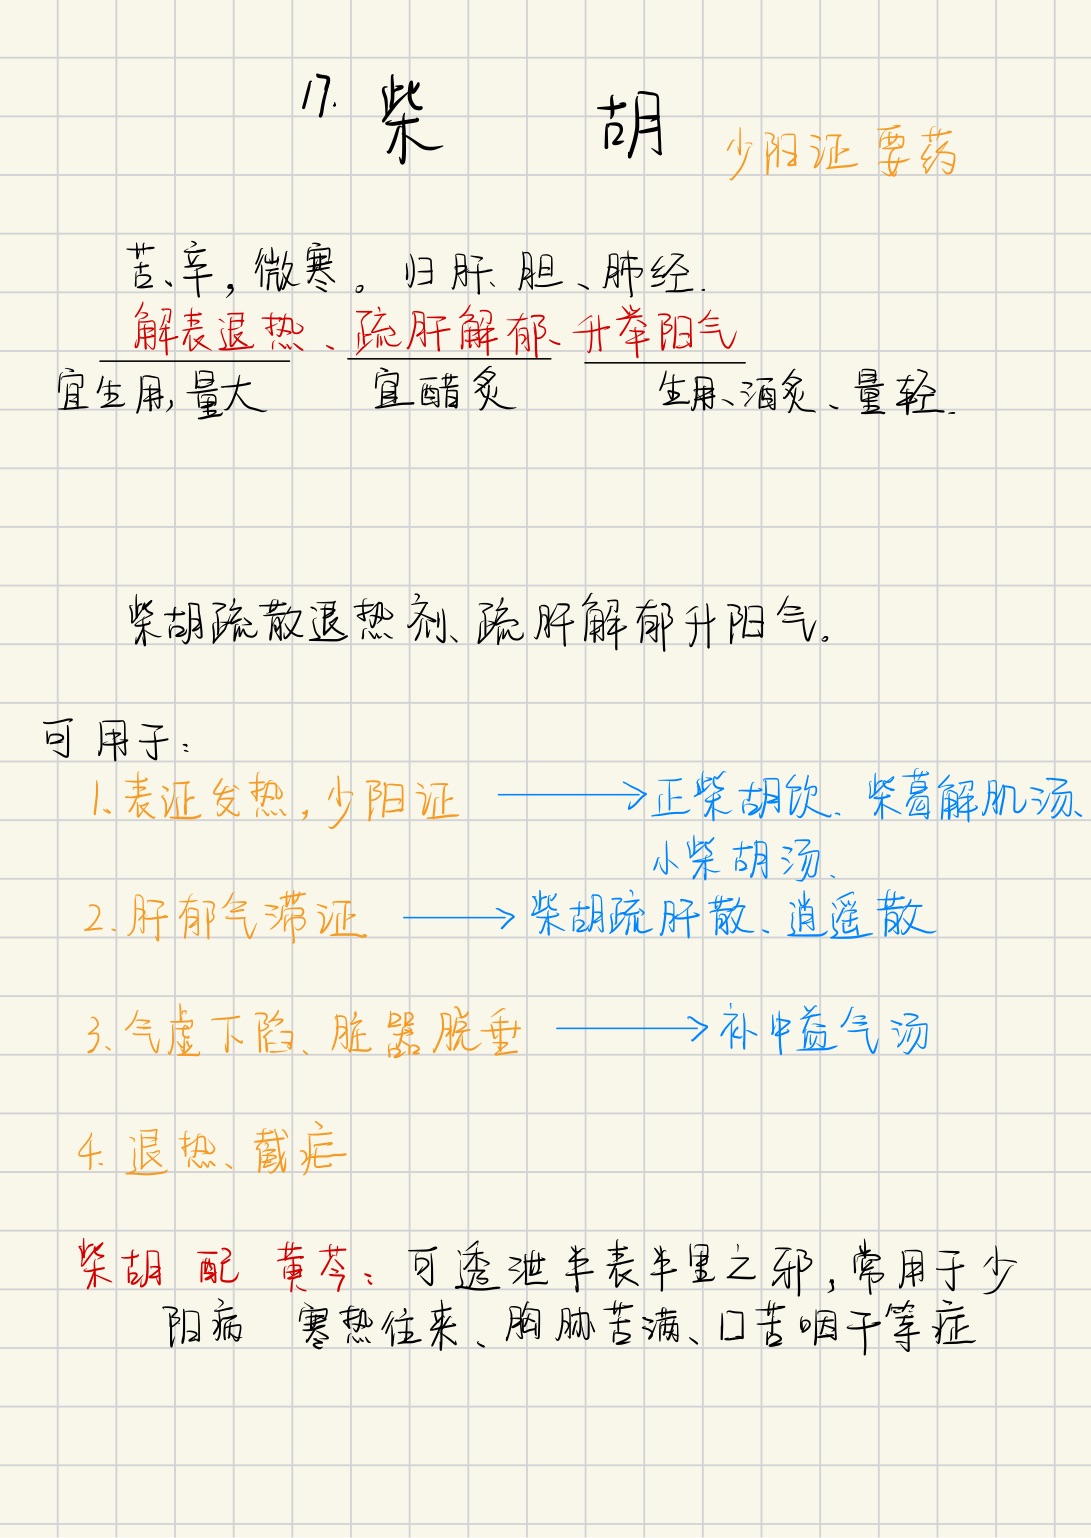 17. 柴 胡 少阳证要药
苦、辛，微寒。归肝、胆、肺经.
解表退热、疏肝解郁、升举阳气
宜生用，量大 宜醋炙 生用、酒炙、量轻.
柴胡疏散退热剂、疏肝解郁升阳气。
可用于：
1.表证发热，少阳证 → 正柴胡饮、柴葛解肌汤、
小柴胡汤、
2.肝郁气滞证 → 柴胡疏肝散、逍遥散
3.气虚下陷、脏器脱垂 → 补中益气汤
4.退热、截疟
柴胡 配 黄芩：可透泄半表半里之邪，常用于少
阳病 寒热往来、胸胁苦满、口苦咽干等症